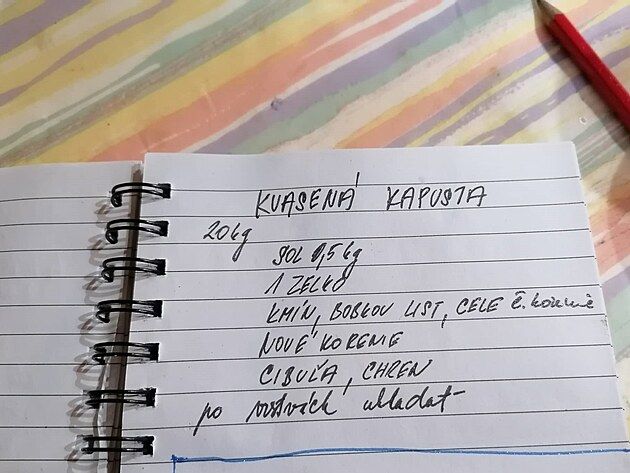 KVASENÁ KAPUSTA
20kg
SOL 0,5 kg
1 ZELKO
KMÍN, BOBKOV LIST, CELE č. korenie
NOVÉ KORENIE
CIBUĽA, CHREN
po vrstvách ukladat